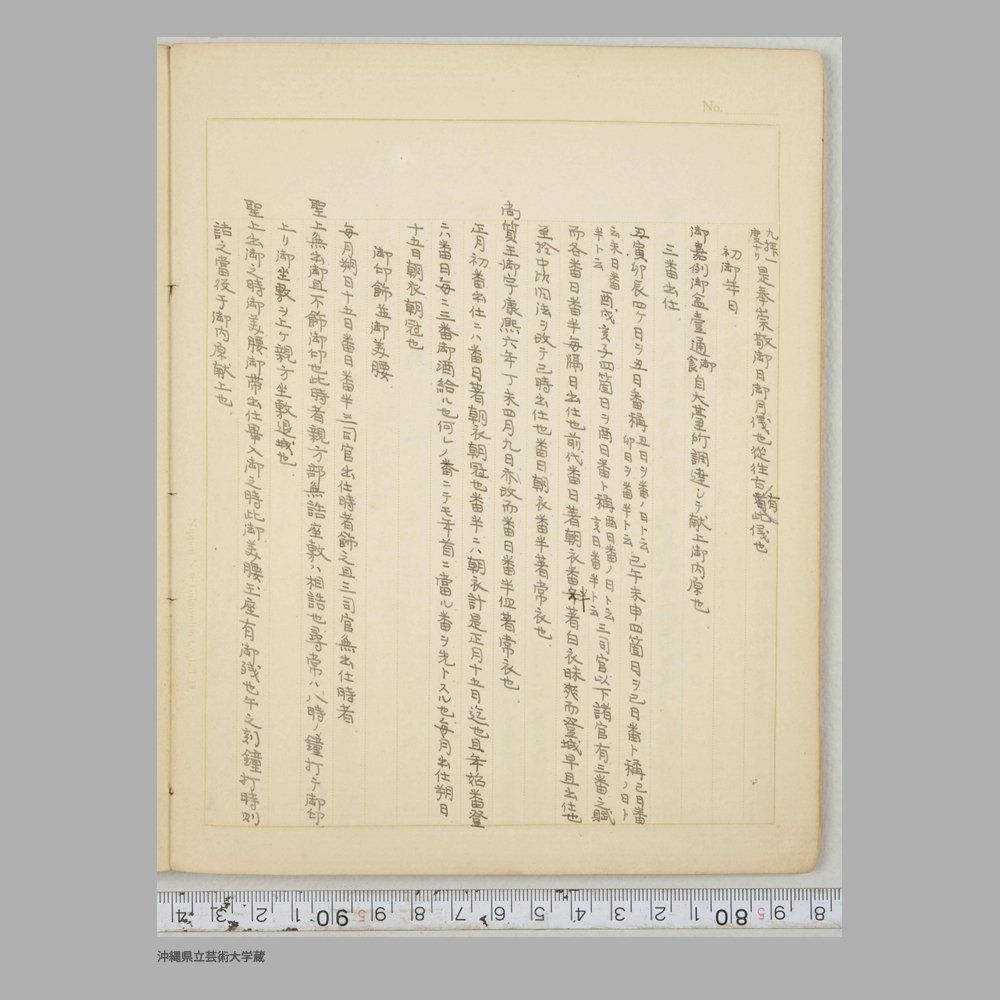 No.
九拝一是奉崇敬御日御月儀也從往古有此儀也
度ナリ
初御年日
御嘉例御盆壹通御飯自大䑓所調達シテ献上御内原也
三番出仕
丑寅卯辰四ケ日ヲ丑日番稱丑日ヲ番ノ日ト云卯日ヲ番半ト云巳午未申四箇日ヲ巳日番ト稱巳日番ノ日ト
云未日番半ト云酉戌亥子四箇日ヲ酉日番ト稱酉日番ノ日ト云亥日番半ト云三司官以下諸官有三番之職
而各番日番半毎隔日出仕也前代番日著朝衣番半著白衣昧爽而登城早且出仕也
至於中比旧法ヲ改テ巳時出仕也番日朝衣番半著常衣也
尚質王御宇康熈六年丁未四月九日亦改而番日番半俱著常衣也
正月初番出仕ニハ番日著朝衣朝冠也番半ニハ朝衣計是正月十五日迄也且年始番登
六番日毎ニ三番御酒給ル也何レノ番ニテモ年首ニ當ル番ヲ先トスル也毎月出仕朔日
十五日朝衣朝冠也
御印飾並御美腰
毎月朔日十五日番日番半三司官出仕時者飾之且三司官無出仕時者
聖上無出御且不飾御印也此時者親方部無詰座敷ハ相詰也尋常ハ八時ノ鐘打テ御印
上リ御坐敷ヲ上ケ親方坐敷退城也
聖上出御之時御美腰御帯出仕畢入御之時此御美腰玉座有御残也午之刻鐘打時則
詰之當役于御内原献上也
4 3 2 1 90 9 8 7 6 5 4 3 2 1 80 9 8
沖縄県立芸術大学蔵